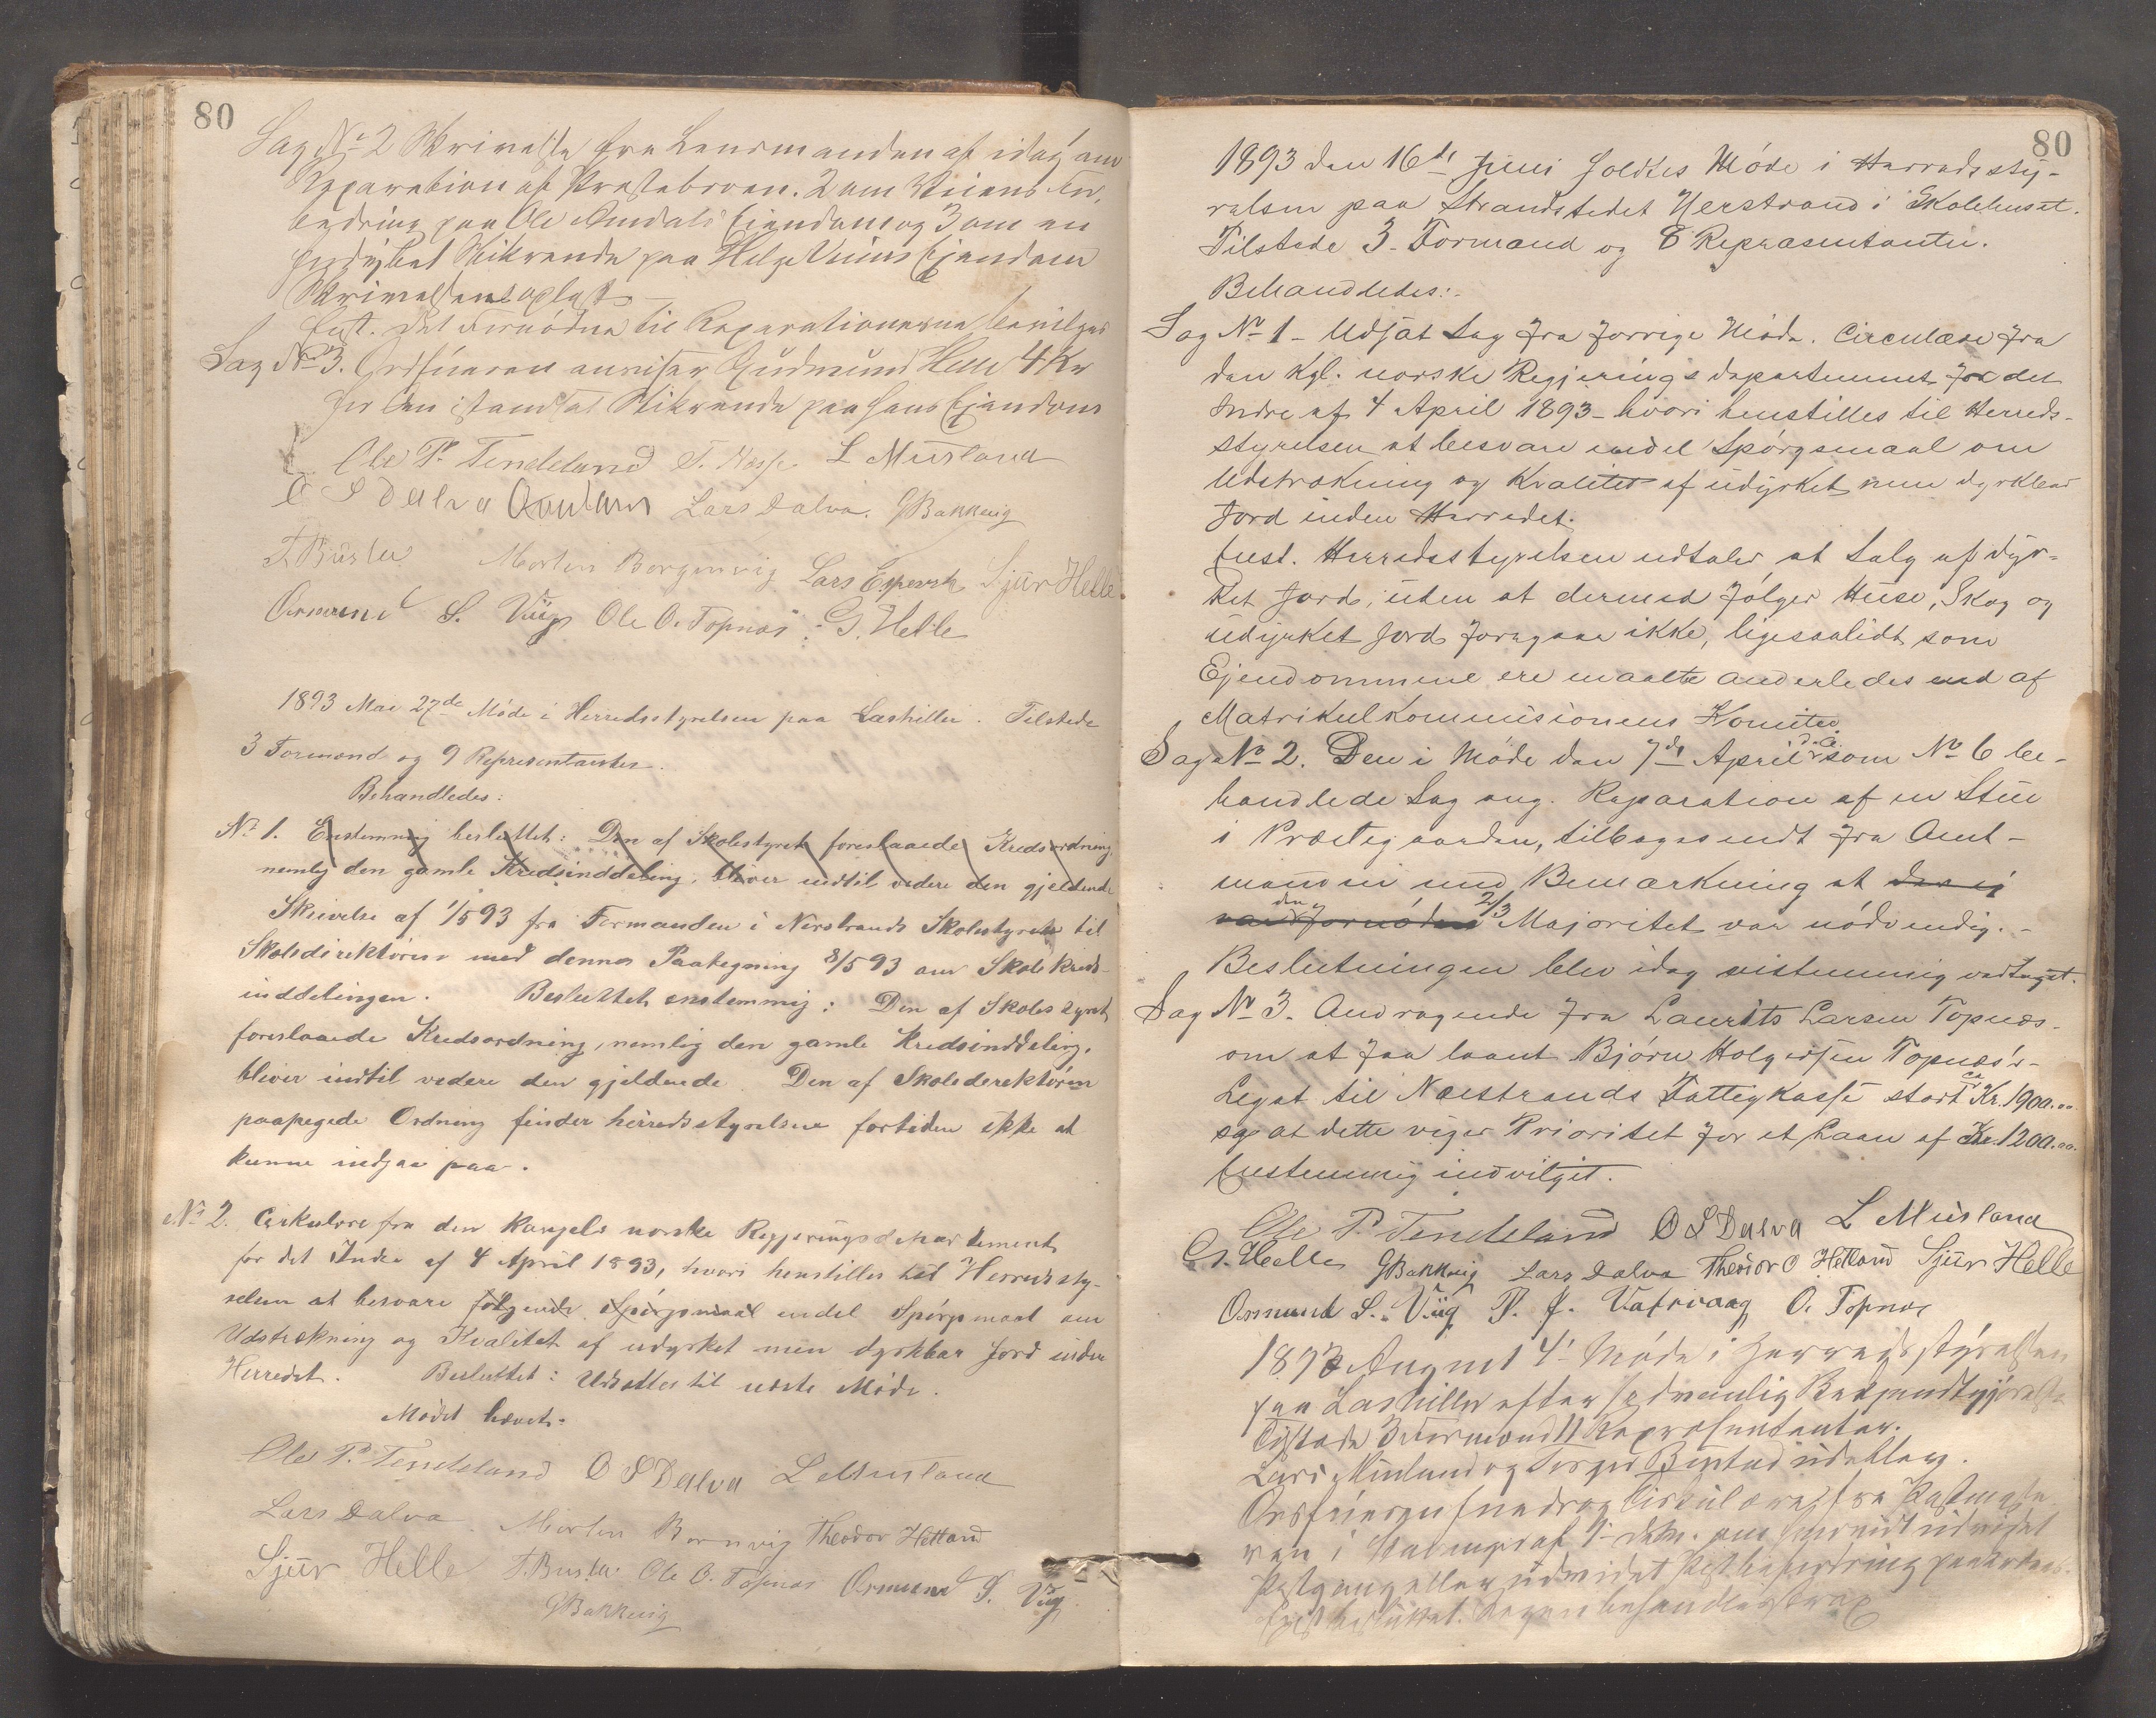 80
Sag No 2 Skrivelse fra Lensmanden af idag om
Reparation af Præstebroen. 2 om Veiens
paa Ole Amdals Eiendom og 3 om en
Stikrende paa Helge Viiens Ejendom
Skrivelsen oplæst
Enst. Det Fornødne til Reparationerne bevilges
Sag No 3. Ordføreren anviser Gudmund Helle 4 Kr
for en istandsat Stikrende paa hans Ejendom
Ole P. Tendeland L Musland
O S Dalva Lars Dalva. G Bakkevig
Morten Borgenvig Lars Espevik Sjur Helle
Osmund S. Viig Ole O. Topnæs G. Helle
1893 Mai 27de Møde i Herredsstyrelsen paa Lashiller. Tilstede
3 Formænd og 9 Representanter.
Behandledes:
No 1. Enstemmig besluttet: Den af Skolestyret foreslaaede Kredsordning,
nemlig den gamle Kredsinddeling, bliver indtil videre den gjeldende
Skrivelse af 1/5 93 fra Formanden i Nerstrands Skolestyrelse til
Skoledirektøren med dennes Paategning 8/5 93 om Skolekreds-
inddelingen. Besluttet enstemmig: Den af Skolestyret
foreslaaede Kredsordning, nemlig den gamle Kredsinddeling,
bliver indtil videre den gjeldende. Den af Skolederektøren
paapegede Ordning finder herredsstyrelsen fortiden ikke at
kunne indgaa paa.
No 2. Cirkulære fra den Kongels norske Regjeringsdepartement
for det Indre af 4 April 1893, hvori henstilles til Herredssty-
relsen at besvare følgende Spørgsmaal endel Spørgsmaal om
Udstrækning og Kvalitet af udyrket men dyrkbar Jord inden
Herredet. Besluttet: Udsættes til næste Møde.
Mødet hævet.
Ole P. Tendeland O S Dalva L Musland
Lars Dalva. Morten Theodor Hetland
Sjur Helle Ole O. Topnæs Osmund S. Viig
G Bakkevig
80
1893 den 16de Juni holdtes Møde i Herredssty-
relsen paa Strandstedet Nerstrand i Skolehuset.
Tilstede 3 Formænd og 8 Repræsentanter.
Behandledes:
Sag No 1 - Udsat Sag fra forrige Møde. Circulære fra
den Kgl. norske Regjerings departement for det
Indre af 4 April 1893 - hvori henstilles til Herreds-
styrelsen at besvare endel Spørgsmaal om
Udstrækning og Kvalitet af udyrket men dyrkbar
Jord inden Herredet.
Enst. Herredsstyrelsen udtaler at Salg af dyr-
ket Jord, uden at dermed følger Huse, Skog og
udyrket Jord foregaar ikke, ligesaalidt som
Ejendommene ere maalte anderledes end af
Matrikulkommisionens Komitee.
Sag No 2. Den i Møde den 7de April d.A. som No 6 be-
handlede Sag ang. Reparation af en Stue
i Præstegaarden, tilbagesendt fra Amt-
manden med Bemærkning at der ej
var den fornødne 2/3 Majoritet var nødvendig. -
Beslutningen blev idag enstemmig vedtaget.
Sag No 3. Andragende fra Laurits Larsen Topnæs
om at faa laant Bjørn Holgersen Topnæs's
Legat til Nærstrands Fattigkasse stort ca Kr. 1900.00
og at dette viger Prioritet for et Laan af Kr. 1200.00.
Enstemmig indvilget.
Ole P. Tendeland O S Dalva L Musland
G. Helle G Bakkevig Lars Dalva Theodor O Hetland Sjur Helle
Osmund S. Viig P. J. Vatsvaag O. Topnæs
1893 August 4' Møde i Herredsstyrelsen
paa Lashiller efter sædvanlig Bekjendtgjørelse
Tilstede 3 Formænd 11 Repræsentanter.
Lars Musland og Torger Bustad udeblev.
Ordføreren fremdrog Cirkulære fra Postmeste-
ren i Stavanger af
Postgang eller udvidet Postbefordring